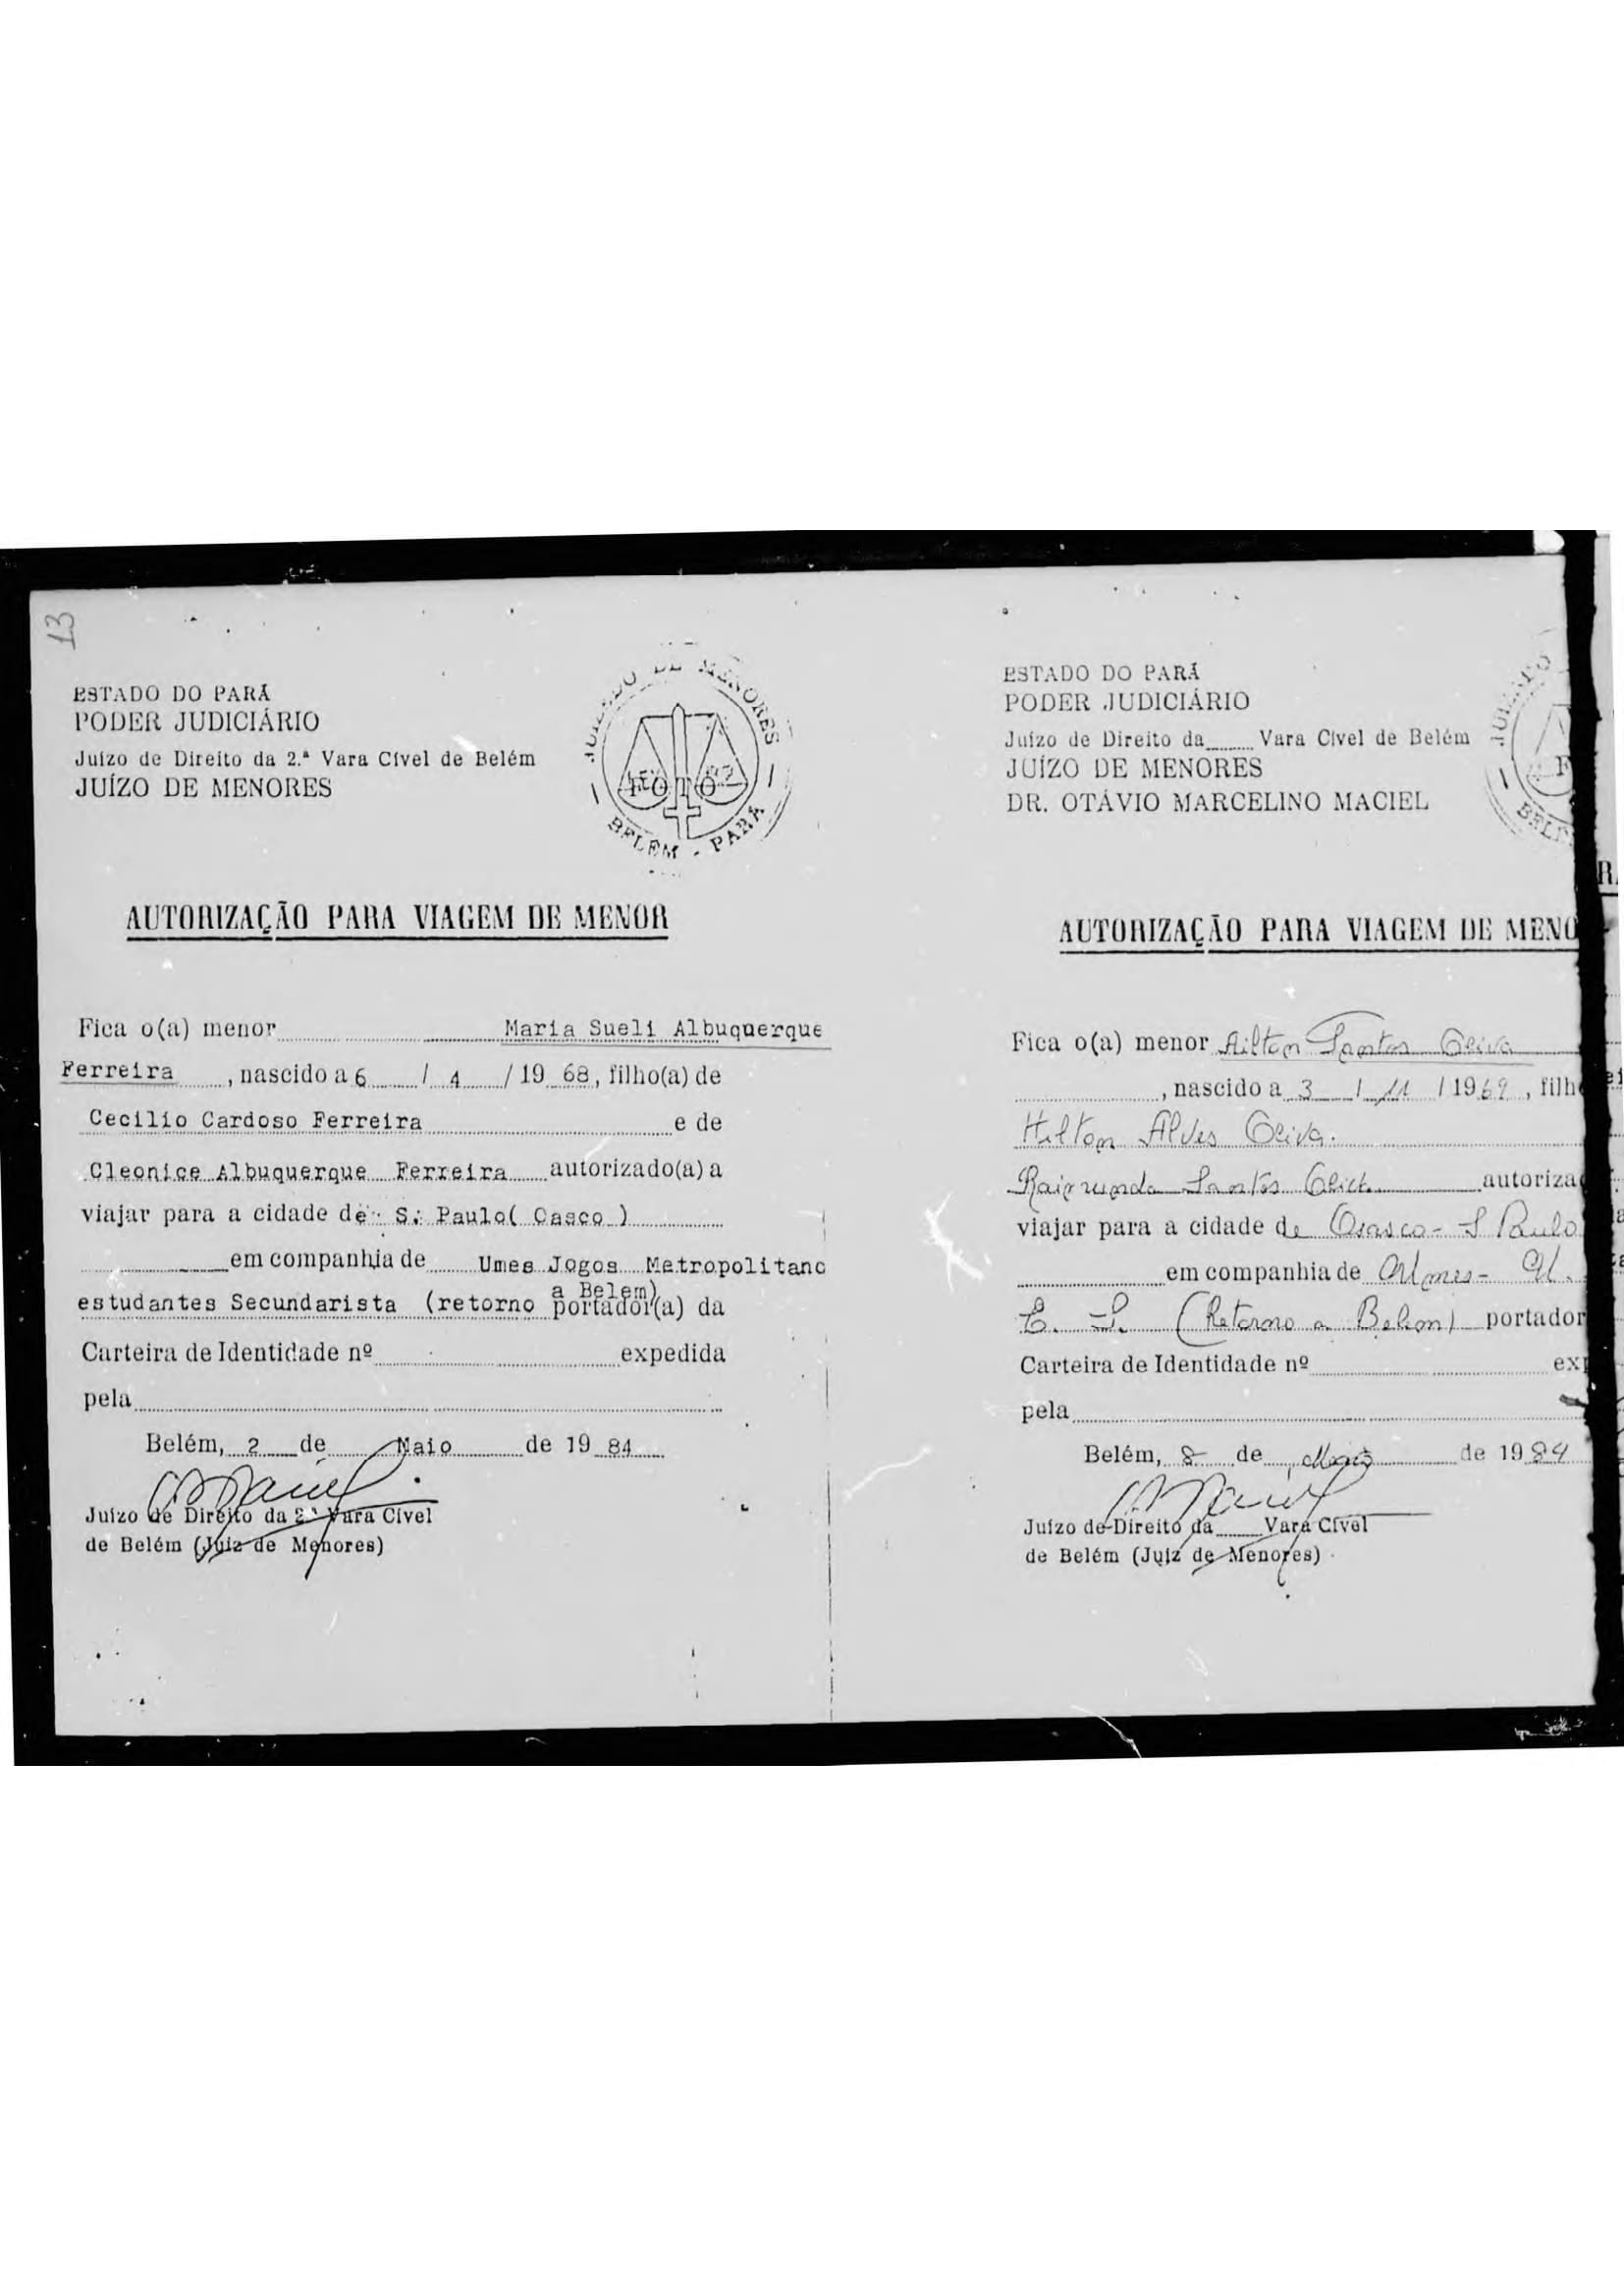 13
ESTADO DO PARÁ
PODER JUDICIÁRIO
Juízo de Direito da 2.ª Vara Cível de Belém
JUÍZO DE MENORES
JUIZADO DE MENORES
FOTO
BELÉM - PARÁ
AUTORIZAÇÃO PARA VIAGEM DE MENOR
Fica o(a) menor Maria Sueli Albuquerque
Ferreira , nascido a 6 / 4 / 19 68, filho(a) de
Cecilio Cardoso Ferreira e de
Cleonice Albuquerque Ferreira autorizado(a) a
viajar para a cidade de S. Paulo( Oasco )
em companhia de Umes Jogos Metropolitano
estudantes Secundarista (retorno a Belem) portador(a) da
Carteira de Identidade nº expedida
pela
Belém, 2 de Maio de 19 84
Juízo de Direito da 2ª Vara Cível
de Belém (Juiz de Menores)
ESTADO DO PARÁ
PODER JUDICIÁRIO
Juízo de Direito da Vara Cível de Belém
JUÍZO DE MENORES
DR. OTÁVIO MARCELINO MACIEL
AUTORIZAÇÃO PARA VIAGEM DE MENO
Fica o(a) menor Ailton Santos Oliva
, nascido a 3 / 11 / 1969 , filh
Hilton Alves Oliva.
Raimunda Santos autoriza
viajar para a cidade de Osasco - S Paulo
em companhia de Umes - U.
E. S. (Retorno a Belem) portador
Carteira de Identidade nº ex
pela
Belém, 8 de Maio de 1984
Juízo de Direito da Vara Cível
de Belém (Juiz de Menores)